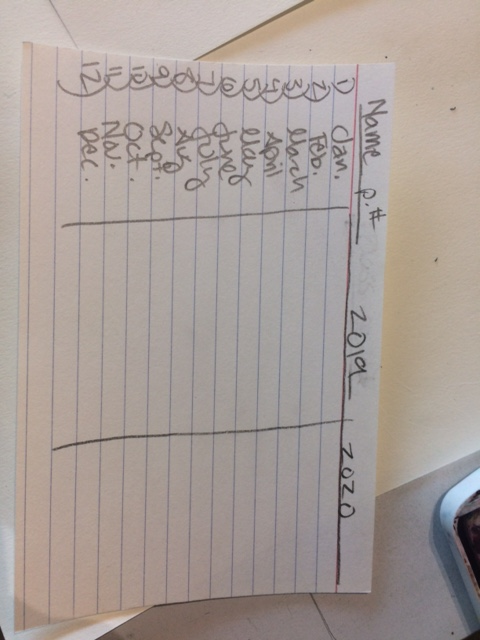 Name p.# 2019 2020
1) Jan.
2) Feb.
3) March
4) April
5) May
6) June
7) July
8) Aug
9) Sept.
10) Oct.
11) Nov.
12) Dec.